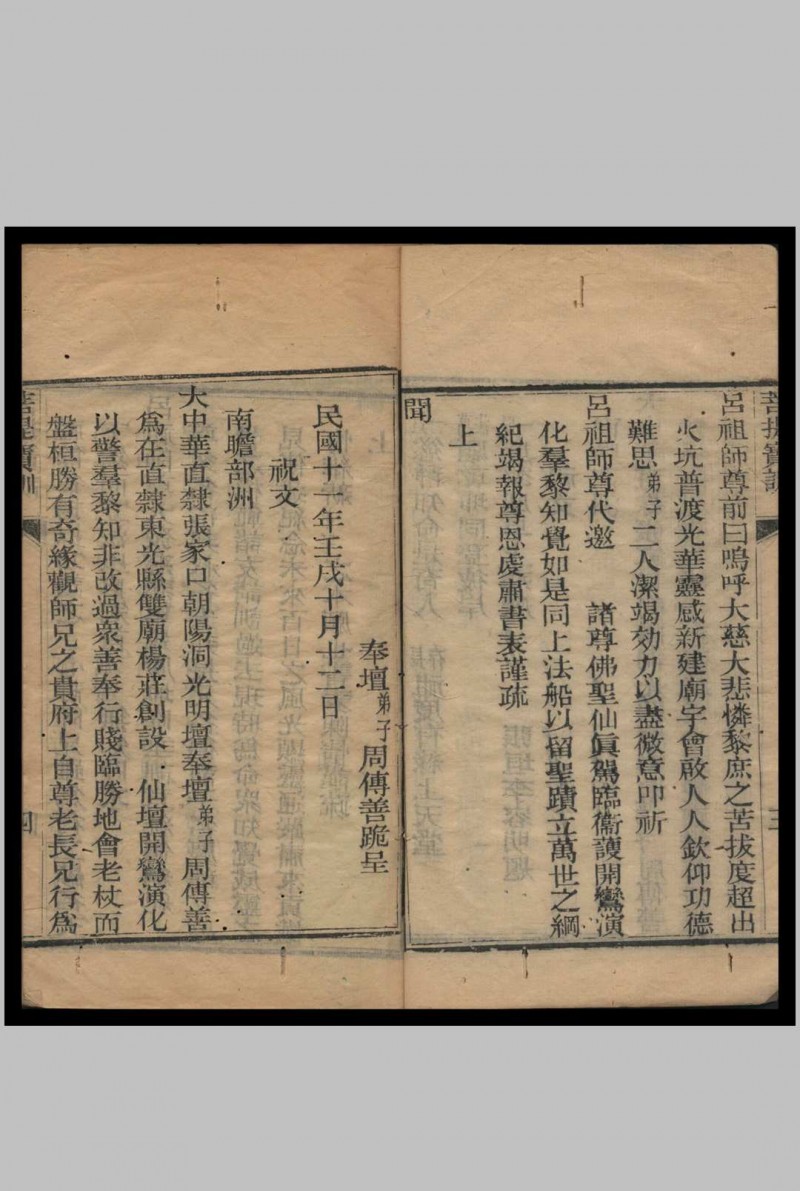 菩提寶訓
三
呂祖師尊前曰嗚呼大慈大悲憐黎庶之苦拔度超出
火坑普渡光華靈感新建廟宇會啟人人欽仰功德
難思弟子二人潔竭効力以盡微意叩祈
呂祖師尊代邀　諸尊佛聖仙眞駕臨衞護開鸞演
化羣黎知覺如是同上法船以留聖蹟立萬世之綱
紀竭報尊恩虔肅書表謹疏
上
聞
奉壇弟子周傳善跪呈
民國十一年壬戌十月十二日
祝文
南瞻部洲
大中華直隸張家口朝陽洞光明壇奉壇弟子周傳善
爲在直隸東光縣雙廟楊莊創設　仙壇開鸞演化
以警羣黎知非改過衆善奉行賤臨勝地會老杖而
盤桓勝有奇緣觀師兄之貴府上自尊老長兄行爲
菩提寶訓
四